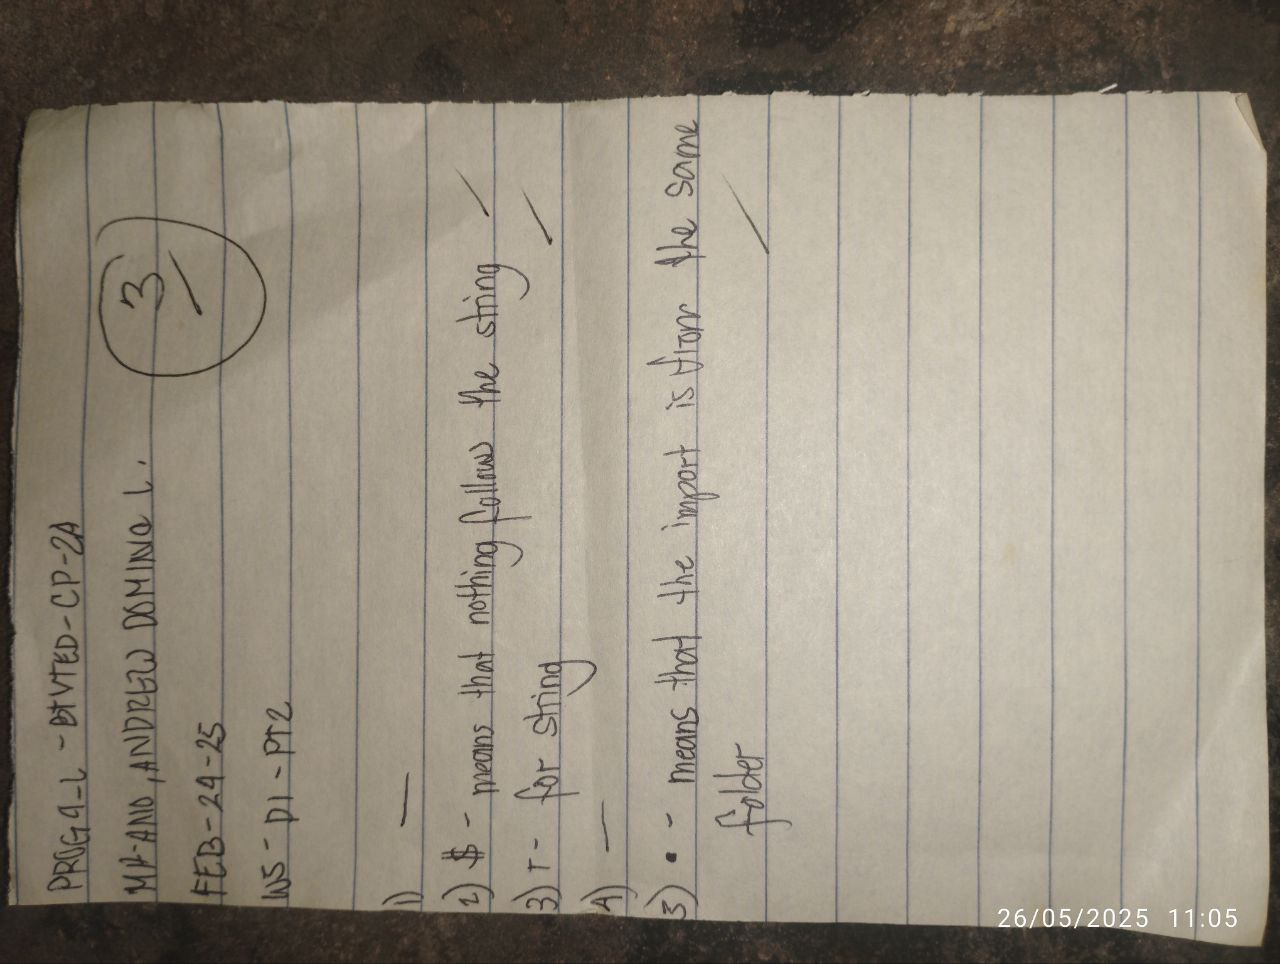 PROG9-L - BTVTED-CP-2A
MA-ANO, ANDREW DOMINQ L.
3
FEB-24-25
W5 - D1 - PT2
1) —
2) $ - means that nothing follows the string
3) r - for string
4) —
5) • - means that the import is from the same
folder
26/05/2025 11:05